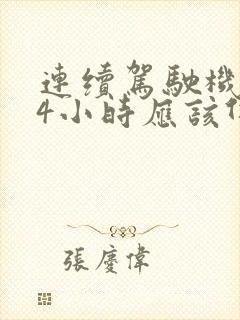 連續駕駛機
4小時應該
張慶偉